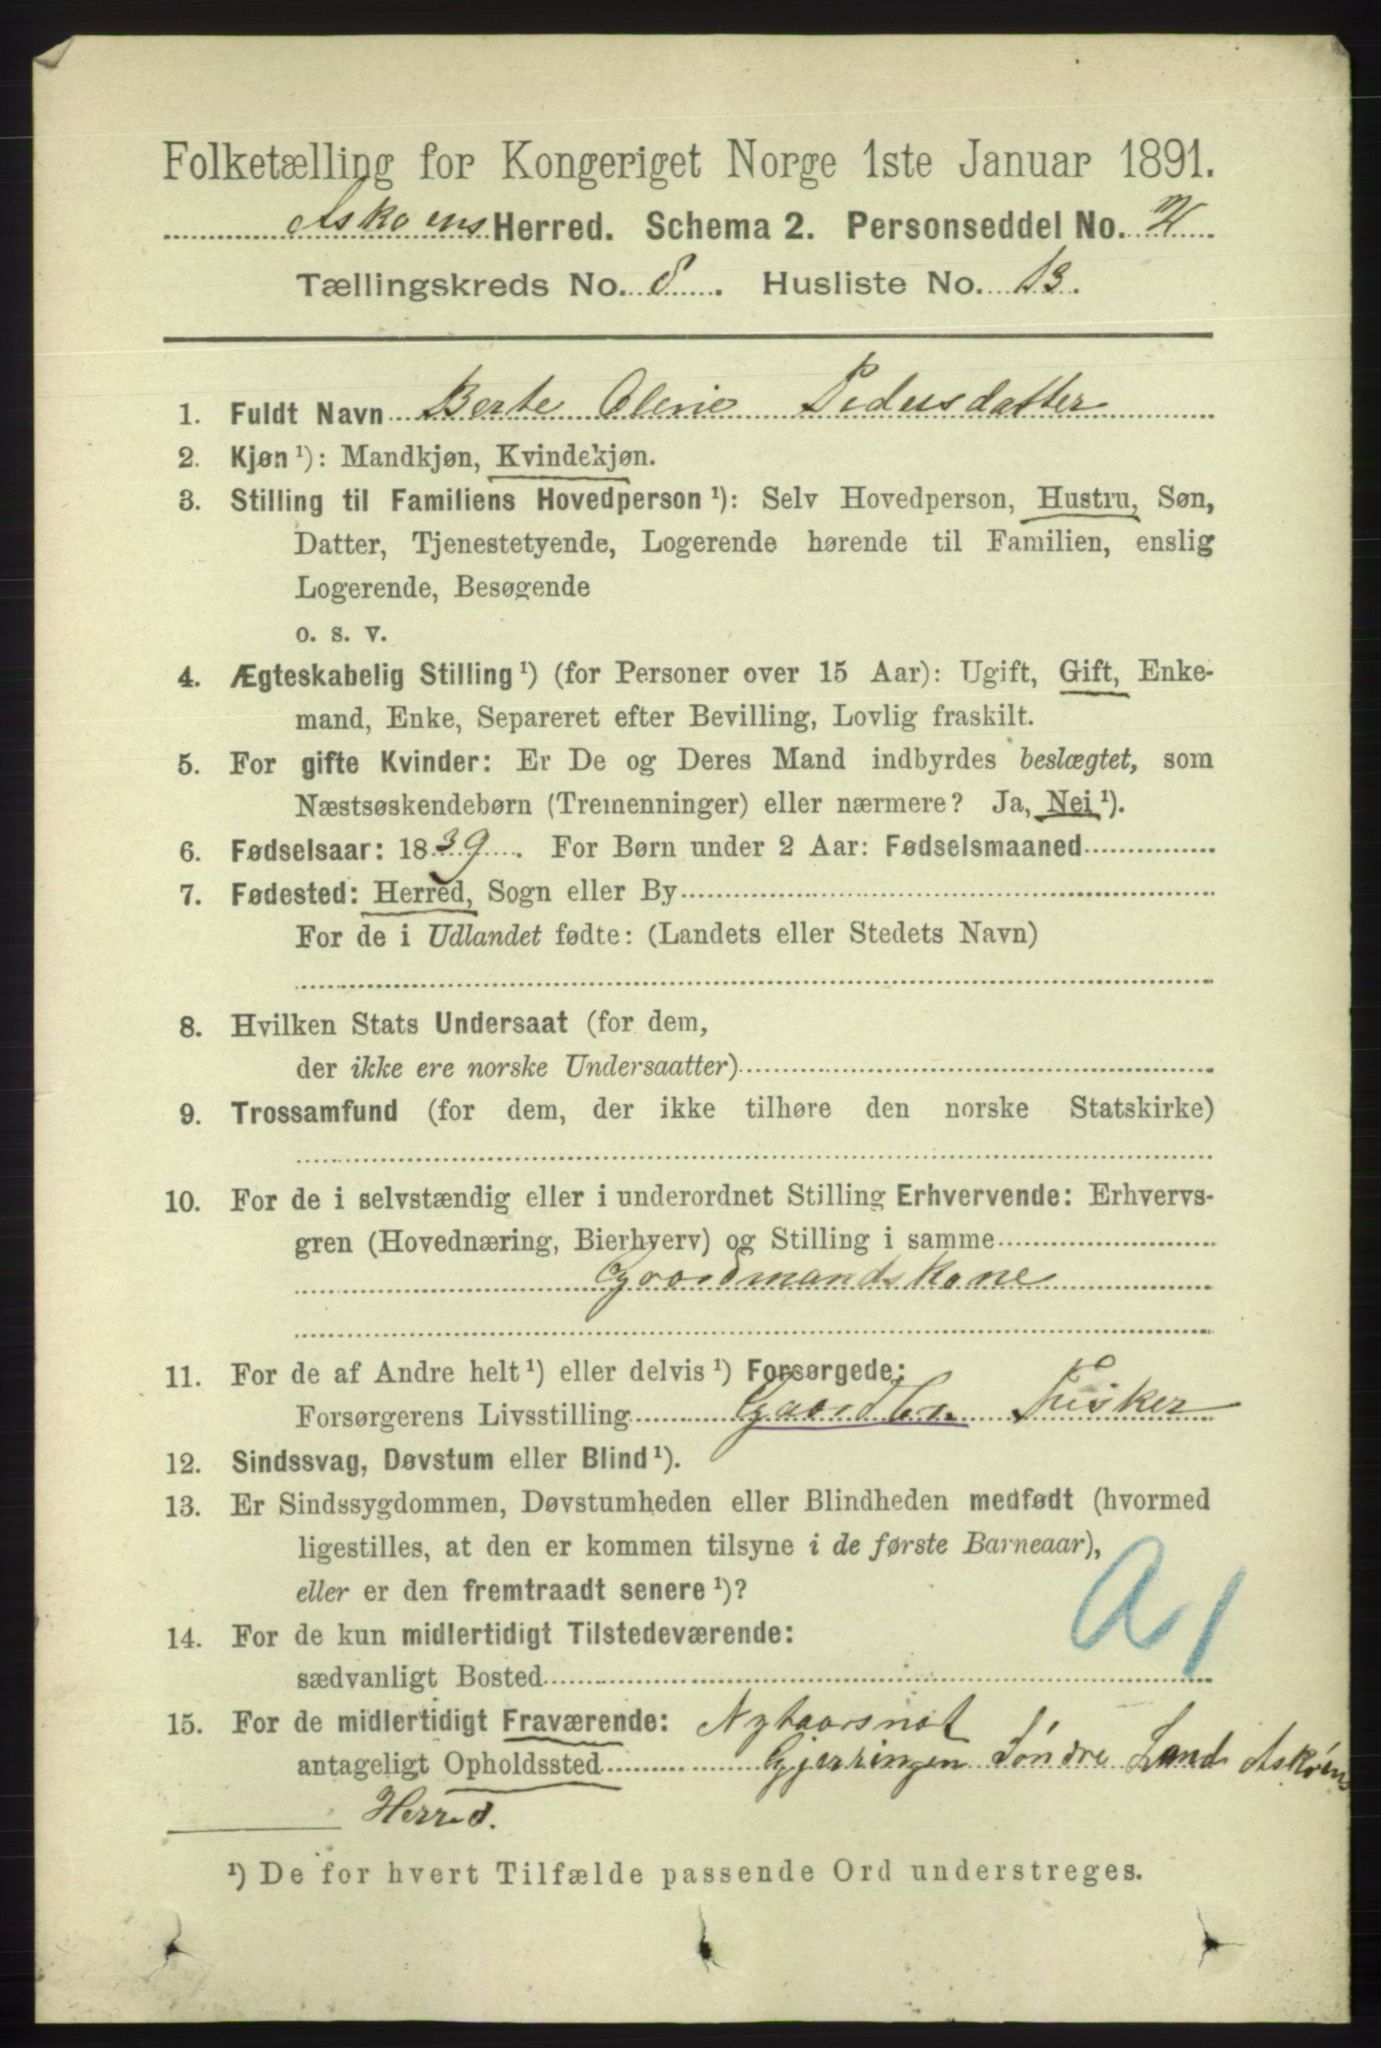 Folketælling for Kongeriget Norge 1ste Januar 1891.
Askøens Herred. Schema 2. Personseddel No. 2
Tællingskreds No. 8. Husliste No. 13.
1. Fuldt Navn Berte Oline Pedersdatter
2. Kjøn¹): Mandkjøn, Kvindekjøn.
3. Stilling til Familiens Hovedperson¹): Selv Hovedperson, Hustru, Søn,
Datter, Tjenestetyende, Logerende hørende til Familien, enslig
Logerende, Besøgende
o. s. v.
4. Ægteskabelig Stilling¹) (for Personer over 15 Aar): Ugift, Gift, Enke-
mand, Enke, Separeret efter Bevilling, Lovlig fraskilt.
5. For gifte Kvinder: Er De og Deres Mand indbyrdes beslægtet, som
Næstsøskendebørn (Tremenninger) eller nærmere? Ja, Nei¹).
6. Fødselsaar: 1839. For Børn under 2 Aar: Fødselsmaaned
7. Fødested: Herred, Sogn eller By
For de i Udlandet fødte: (Landets eller Stedets Navn)
8. Hvilken Stats Undersaat (for dem,
der ikke ere norske Undersaatter)
9. Trossamfund (for dem, der ikke tilhøre den norske Statskirke)
10. For de i selvstændig eller i underordnet Stilling Erhvervende: Erhvervs-
gren (Hovednæring, Bierhverv) og Stilling i samme
Gaardmandskone
11. For de af Andre helt¹) eller delvis¹) Forsørgede:
Forsørgerens Livsstilling Gaardbr. Fisker
12. Sindssvag, Døvstum eller Blind¹).
13. Er Sindssygdommen, Døvstumheden eller Blindheden medfødt (hvormed
ligestilles, at den er kommen tilsyne i de første Barneaar),
eller er den fremtraadt senere¹)?
A 1
14. For de kun midlertidigt Tilstedeværende:
sædvanligt Bosted
15. For de midlertidigt Fraværende: Nytaarsnat
antageligt Opholdssted Gjerringen Söndre Land Askøens
Herred.
¹) De for hvert Tilfælde passende Ord understreges.